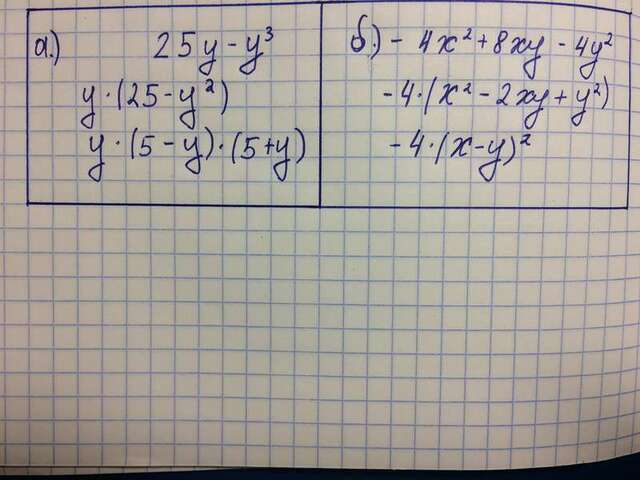 а.)
25y - y³
y · (25 - y²)
y · (5 - y) · (5 + y)
б.) - 4x² + 8xy - 4y²
- 4 · (x² - 2xy + y²)
- 4 · (x - y)²